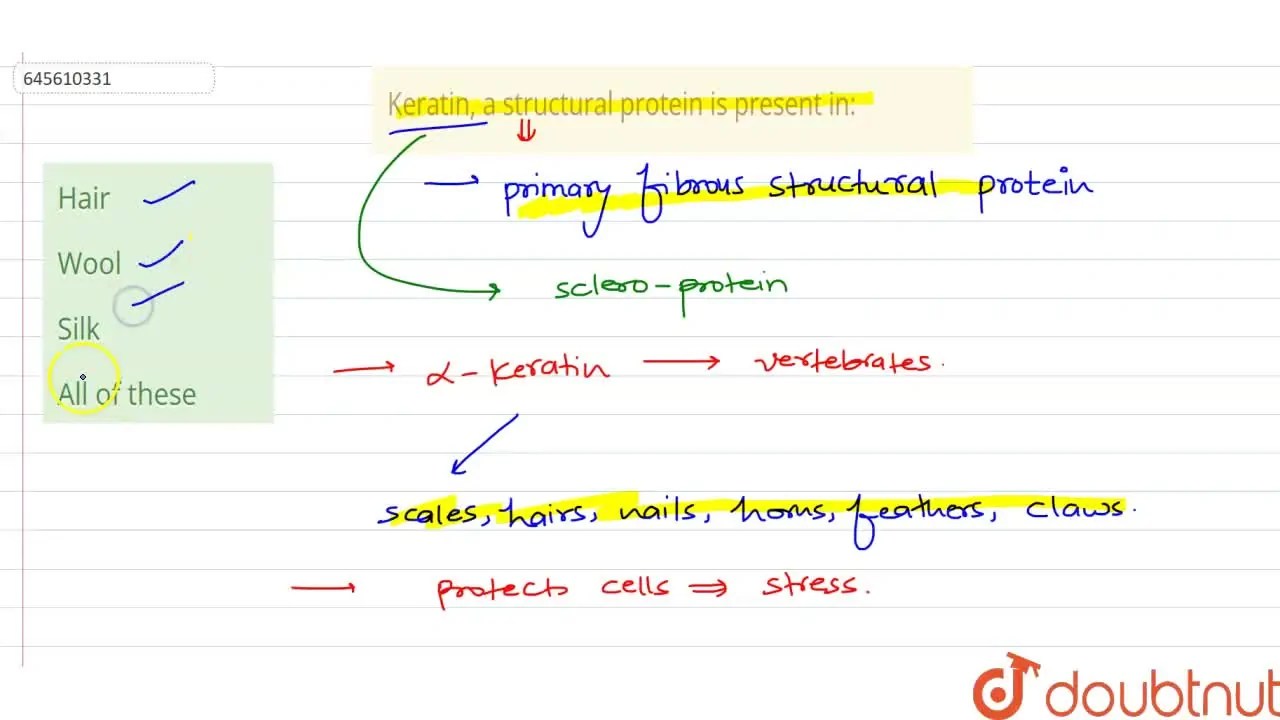 645610331
Keratin, a structural protein is present in:
Hair
Wool
Silk
All of these
→ primary fibrous structural protein
sclero-protein
→ α-keratin → vertebrates.
scales, hairs, nails, horns, feathers, claws.
→ protects cells ⇒ stress.
doubtnut